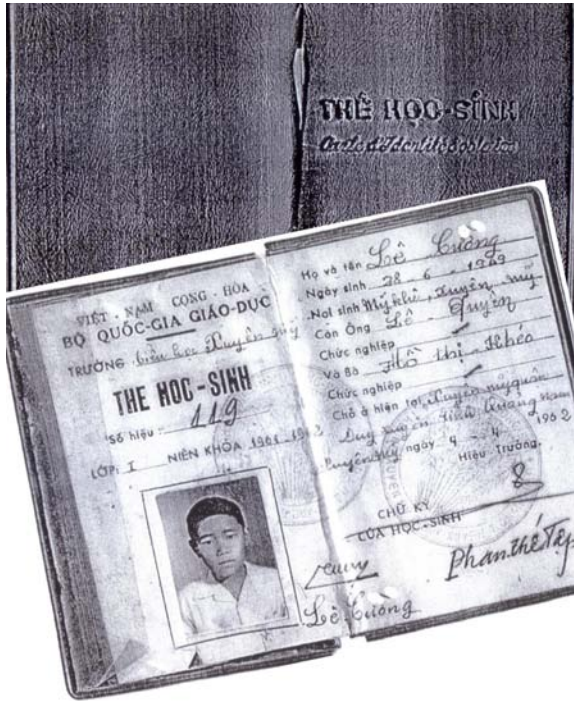 THẺ HỌC-SINH
Carte d'Identité Scolaire
VIỆT-NAM CỘNG-HÒA
BỘ QUỐC-GIA GIÁO-DỤC
TRƯỜNG tiểu học Xuyên Mỹ
THẺ HỌC-SINH
Số hiệu: 119
LỚP: I NIÊN KHÓA 1961-1962
Họ và tên Lê Cường
Ngày sinh 28-6-1949
Nơi sinh Mỹ khê, Xuyên mỹ
Con Ông Lê-Duyên
Chức nghiệp
Và Bà Hồ thị-Khéo
Chức nghiệp
Chỗ ở hiện tại Xuyên mỹ quận
Duy xuyên, tỉnh Quảng nam
Xuyên Mỹ ngày 4-4-1962
Hiệu Trưởng,
CHỮ KÝ
CỦA HỌC-SINH
Phan thế Tập
Lê Cường